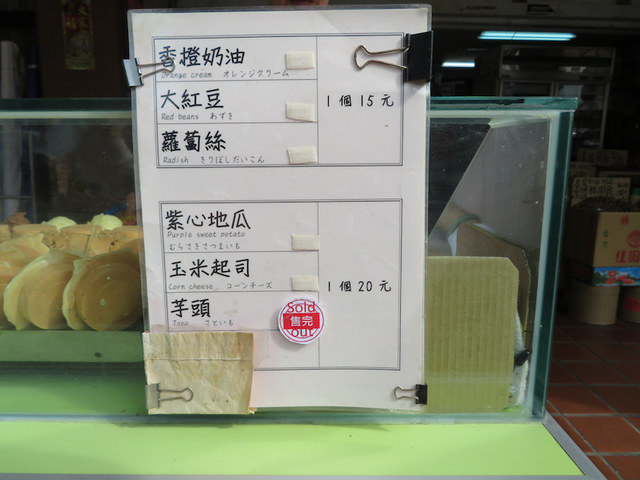 香橙奶油
Orange cream オレンジクリーム
大紅豆
Red beans あずき
蘿蔔絲
Radish きりぼしだいこん
1個15元
紫心地瓜
Purple sweet potato
むらさきさつまいも
玉米起司
Corn cheese コーンチーズ
芋頭
Taro さといも
1個20元
Sold
售完
out